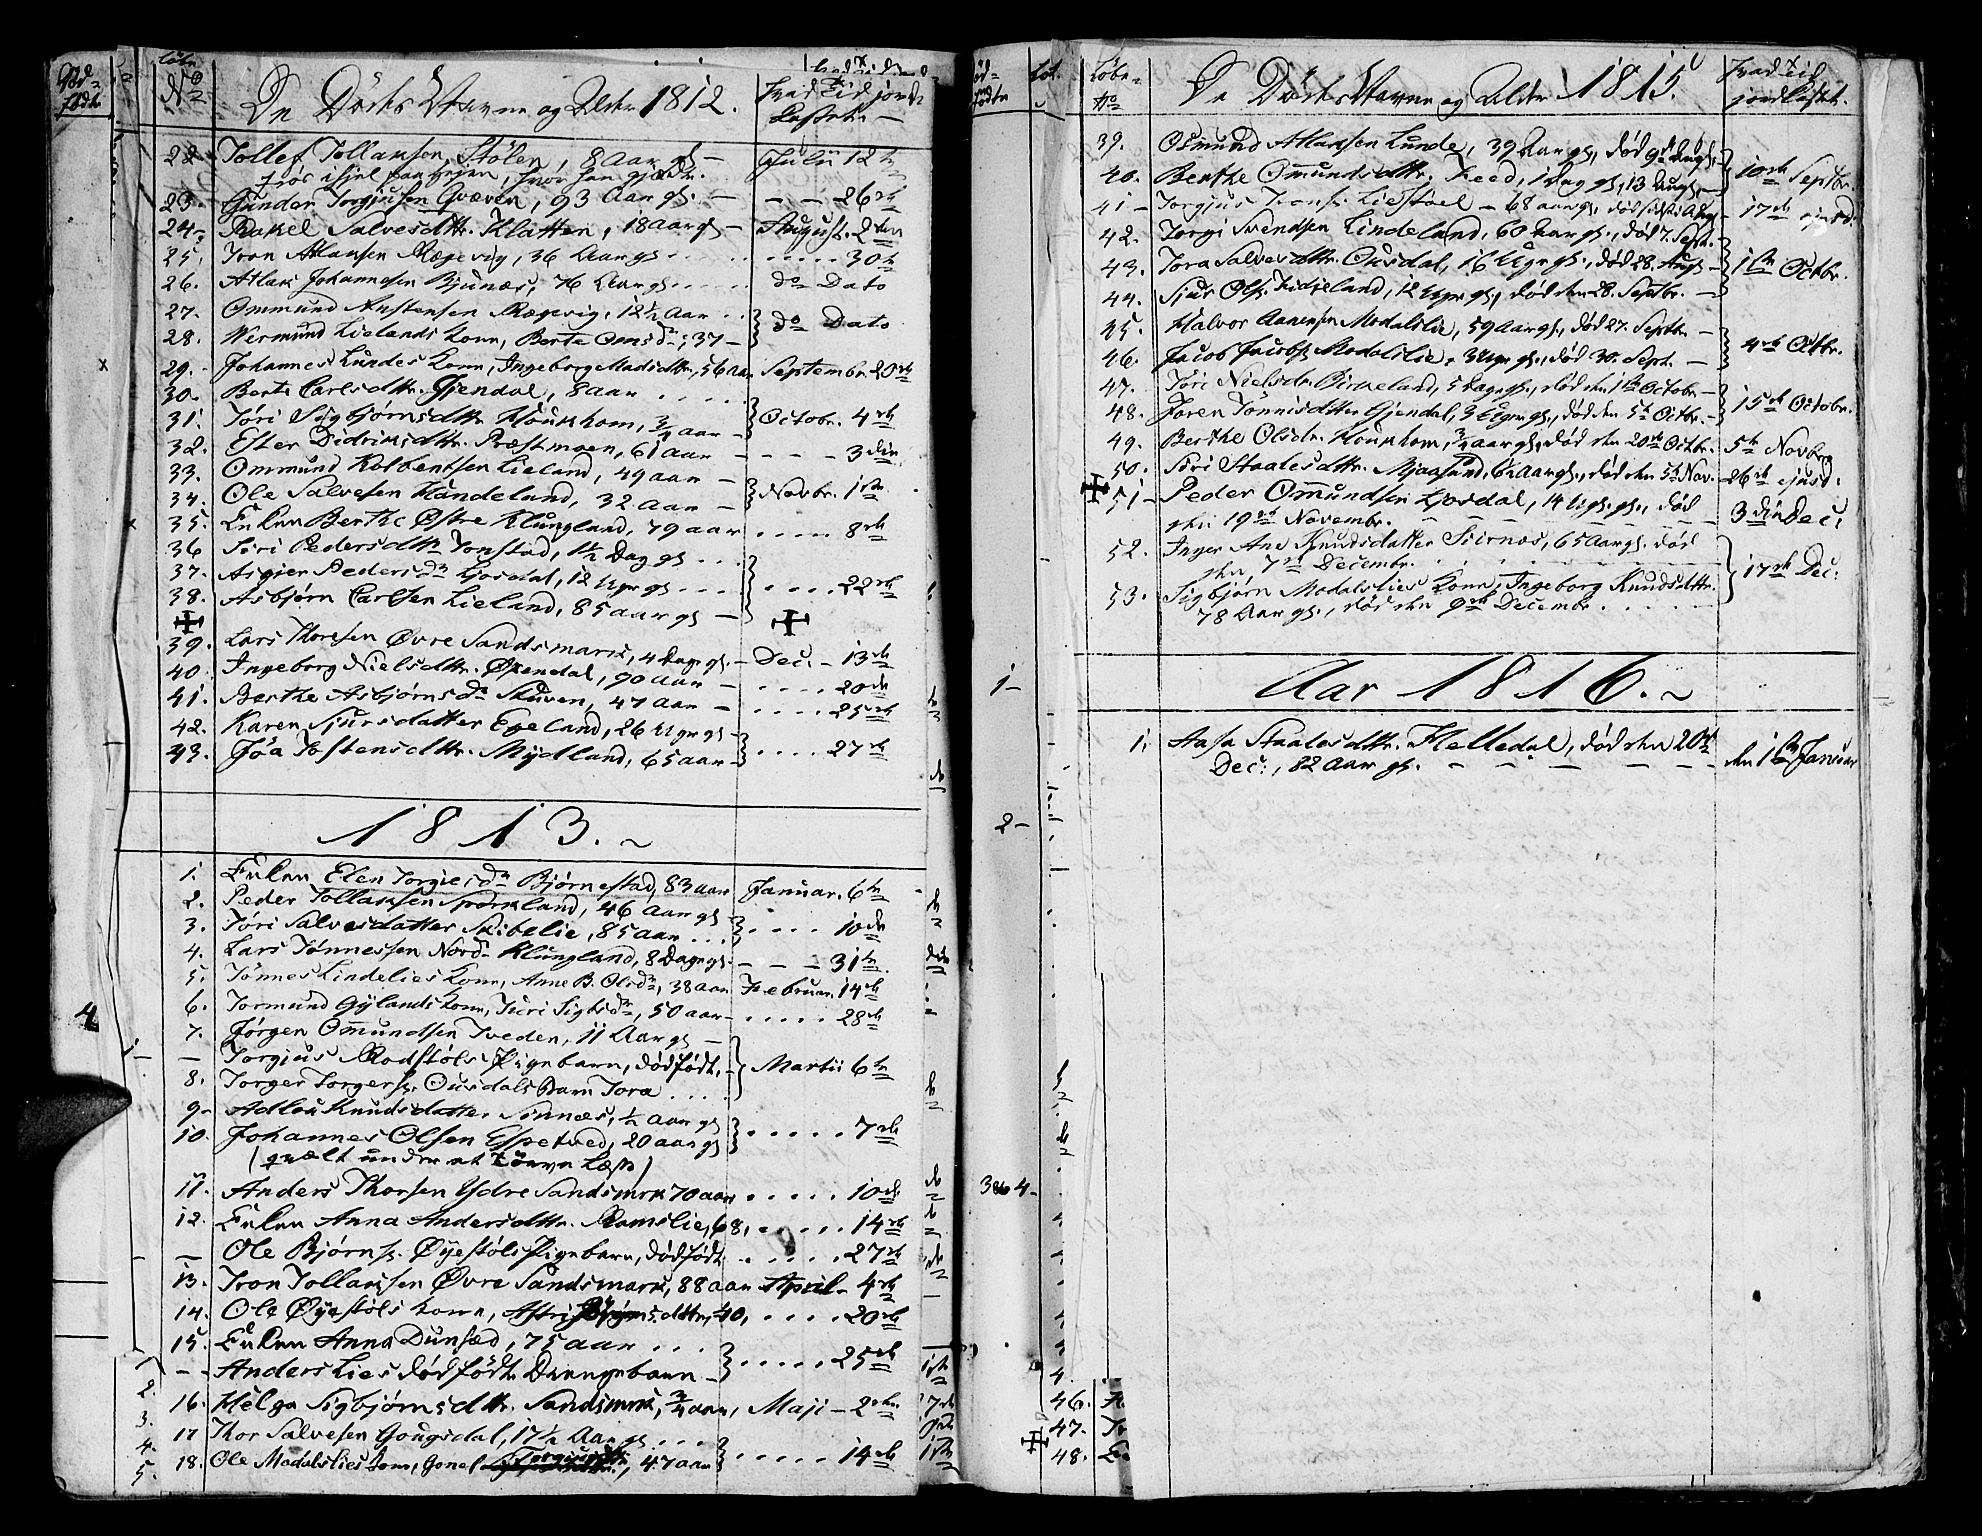 No
De Dödes Navne og Alder 1812.
Hvad Tid jords
22 Tollef Tollaksen Stölen, 8 Aar gl. – Julii 12te
frös ihjel paa Heien, hvor han gjætte.
23. Gunder Torgjusen Qvæven, 93 Aar gl. – – – 26de
24. Rakel Salvesdttr. Klatten, 18 aar gl – August 2den
25. Tron Atlaksen Rægevig, 36 Aar gl . . . . . 30te
26. Atlak Johannesen Bjunæs, 76 Aar gl. . . . . do Dato
27. Ommund Anstensen Rægevig, 12½ Aar . .
28. Wermund Lielands Kone, Berte Omsdr, 37 – do Dato
29. Johannes Lundes Kone, Ingeborg Madsdttr, 56 aar Septembr. 20de
30. Berte Carlsdttr. Gjendal, 8 aar . . . . .
31. Töri Sigbjörnsdttr Houkhom, ¾ aar – Octobr. 4de
32. Ester Didriksdttr. Præstmoen, 61 Aar – – – – 3die
33. Ommund Kolbentsen Lieland, 49 aar –
34. Ole Salvesen Handeland, 32 aar – Novbr. 1ste
35. Enken Berthe Østre Klungland, 79 aar . . . . 8de
36 Siri Pedersdttr Tonstad, 1½ Dag gl . . .
37. Asgier Pedersdr Josdal, 12 Ugr gl . . . . . . . 22de
38. Asbjörn Carlsen Lieland, 85 aar gl –
39. Lars Thoresen Øvre Sandsmark, 4 Dage gl. – Dec. – 13de
40. Ingeborg Nielsdttr. Øxendal, 90 aar – . . . . 20de
41. Berthe Asbjörnsdr Skuven, 47 Aar – . . . . 25de
42. Karen Sjursdatter Egeland, 26 Ugr gl –
43. Jöa Tostensdttr. Mydland, 65 aar – . . . . 27de
1813. ~
1. Enken Elen Torgiersdr Björnestad, 83 aar Januar. 6te
2. Peder Tollaksen Sporkland, 46 Aar gl
3. Töri Salvesdatter Skibelie, 85 aar . . . . . . . 10de
4. Lars Tönnessen Nordr Klungland, 8 Dage gl. – – – 31te
5. Tönnes Lindelies Kone, Anne B. Olsdr, 38 aar Februar. 14de
6. Tormund Gylands Kone, Siri Sigbsdr, 50 aar – . . . . . 28de
7. Jörgen Omundsen Tveden, 11 Aar gl –
— Torgjus Rodstöls Pigebarn, dödfödt, – Martii 6te
8. Torger Torgersp. Ousdals Barn Tora . . . .
9– Adlou Knudsdatter Sinnæs, ½ aar gl
10. Johannes Olsen Espetved, 20 aar gl . . . . . 7de
(qvælt under et Törve Læss)
11. Anders Thorsen Ydre Sandsmrk 70 aar . . . . . 10de
12. Enken Anna Andersdttr. Ramslie, 68, . . . . . 14de
— Ole Björns. Øyestöls Pigebarn, dödfödt . . . . . 27de
13. Tron Tollaksen Øvre Sandsmark, 88 aar April – 4de
14. Ole Øyestöls Kone, Astri Börjesdttr, 40, . . . . 20de
15. Enken Anna Dunsæd, 75 aar . . .
— Anders Lies dödfödt Drengebarn – . . . . . 25de
16. Helga Sigbjörnsdttr. Sandsmrk, ¾ aar, Maji – 2den
17 Thor Salvesen Gougsdal, 17½ Aar gl . . .
18. Ole Modalslies Kone, Gonel, 47 aar . . . . . 14de
Löbe-
No
De Dödes Navne og Alder 1815.
Hvad Tid
jordfæstet.
39. Osmund Atlaksen Lunde, 39 Aar gl., död 9de Augs. –
40. Berthe Omundsdttr. Feed, 1 Dag gl., 13 Augs. – 10de Septbr.
41 – Torgius Trons. Liestöel – 68 aar gl, död sidst i Aug. 17de ejusd.
42. Torgi Svendsen Lindeland, 60 Aar gl., död 7. Sept. –
43. Tora Salvesdttr. Ousdal, 16 Ugr gl., död 28. Augs – 1ste Octbr.
44. Sjur Ols. Lidjeland, 12 Ugr. gl, död den 28. Septbr. –
45. Halvor Aanensen Modalslie, 59 aar gl., död 27. Septr. –
46. Jacob Jacobs. Modalslie, 3 Ugr gl., död 30. Sept. – 4de Octbr.
47. Töri Nielsdr. Birkeland, 5 Dage gl., död den 1ste Octobr –
48. Joren Tönnisdtter Gjendal, 3 Ugr gl., död den 5te Octbr. – 15de Octobr.
49. Berthe Olsdr. Houkhom, ¾ aar gl., död den 20de Octbr. 5te Novbrg
50. Siri Staalesdttr. Mjaasund, 6½ Aar gl., död den 5te Nov. 26de ejusd:
51 – Peder Omundsen Josdal, 14 Ugr gl., död
den 19de Novembr. 3die Dec:
52. Inger Ane Knudsdatter Sirnæs, 65 Aar gl. död
den 7de Decembr.
53. Sigbjörn Modalslies Kone, Ingeborg Knudsdttr. 17de Dec:
78 Aar gl., död den 9de Decembr . . . . .
Aar 1816. ~
1. Aasa Staalesdttr. Helledal, död den 20de
Dec:, 82 Aar gl. den 1ste Januar
46.
47.
48.